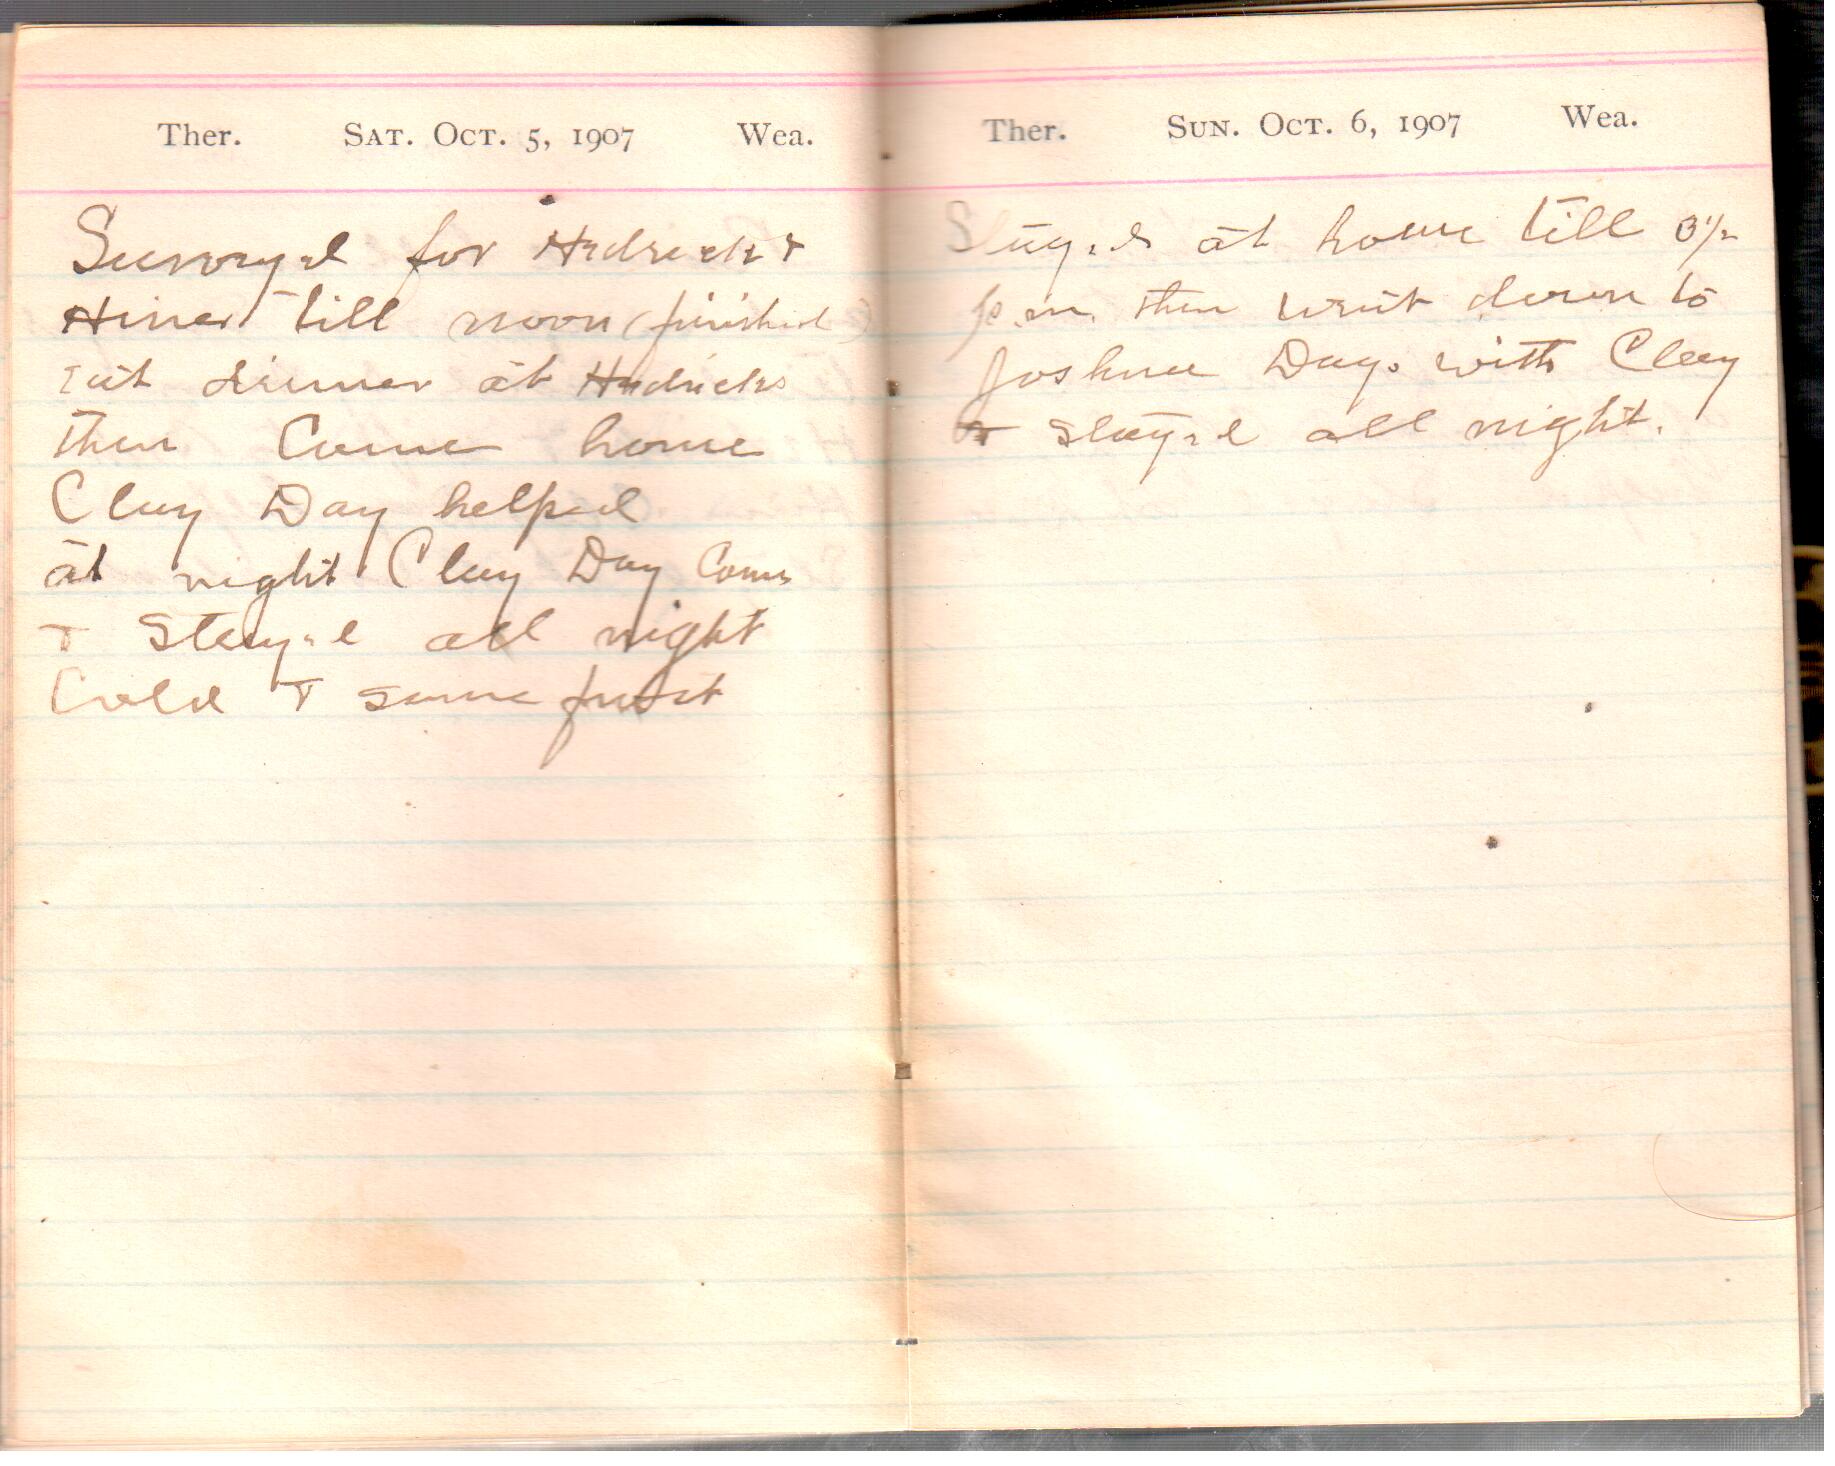 Ther. SAT. OCT. 5, 1907 Wea.
Surveyed for Hedrick &
Hiner till noon (finished)
eat dinner at Hedricks
then Come home
Clay Day helped
at night Clay Day Come
& stayed all night
Cold & some frost
Ther. SUN. OCT. 6, 1907 Wea.
Stayed at home till 3½
p.m. then went down to
Joshua Days with Clay
& stayed all night.